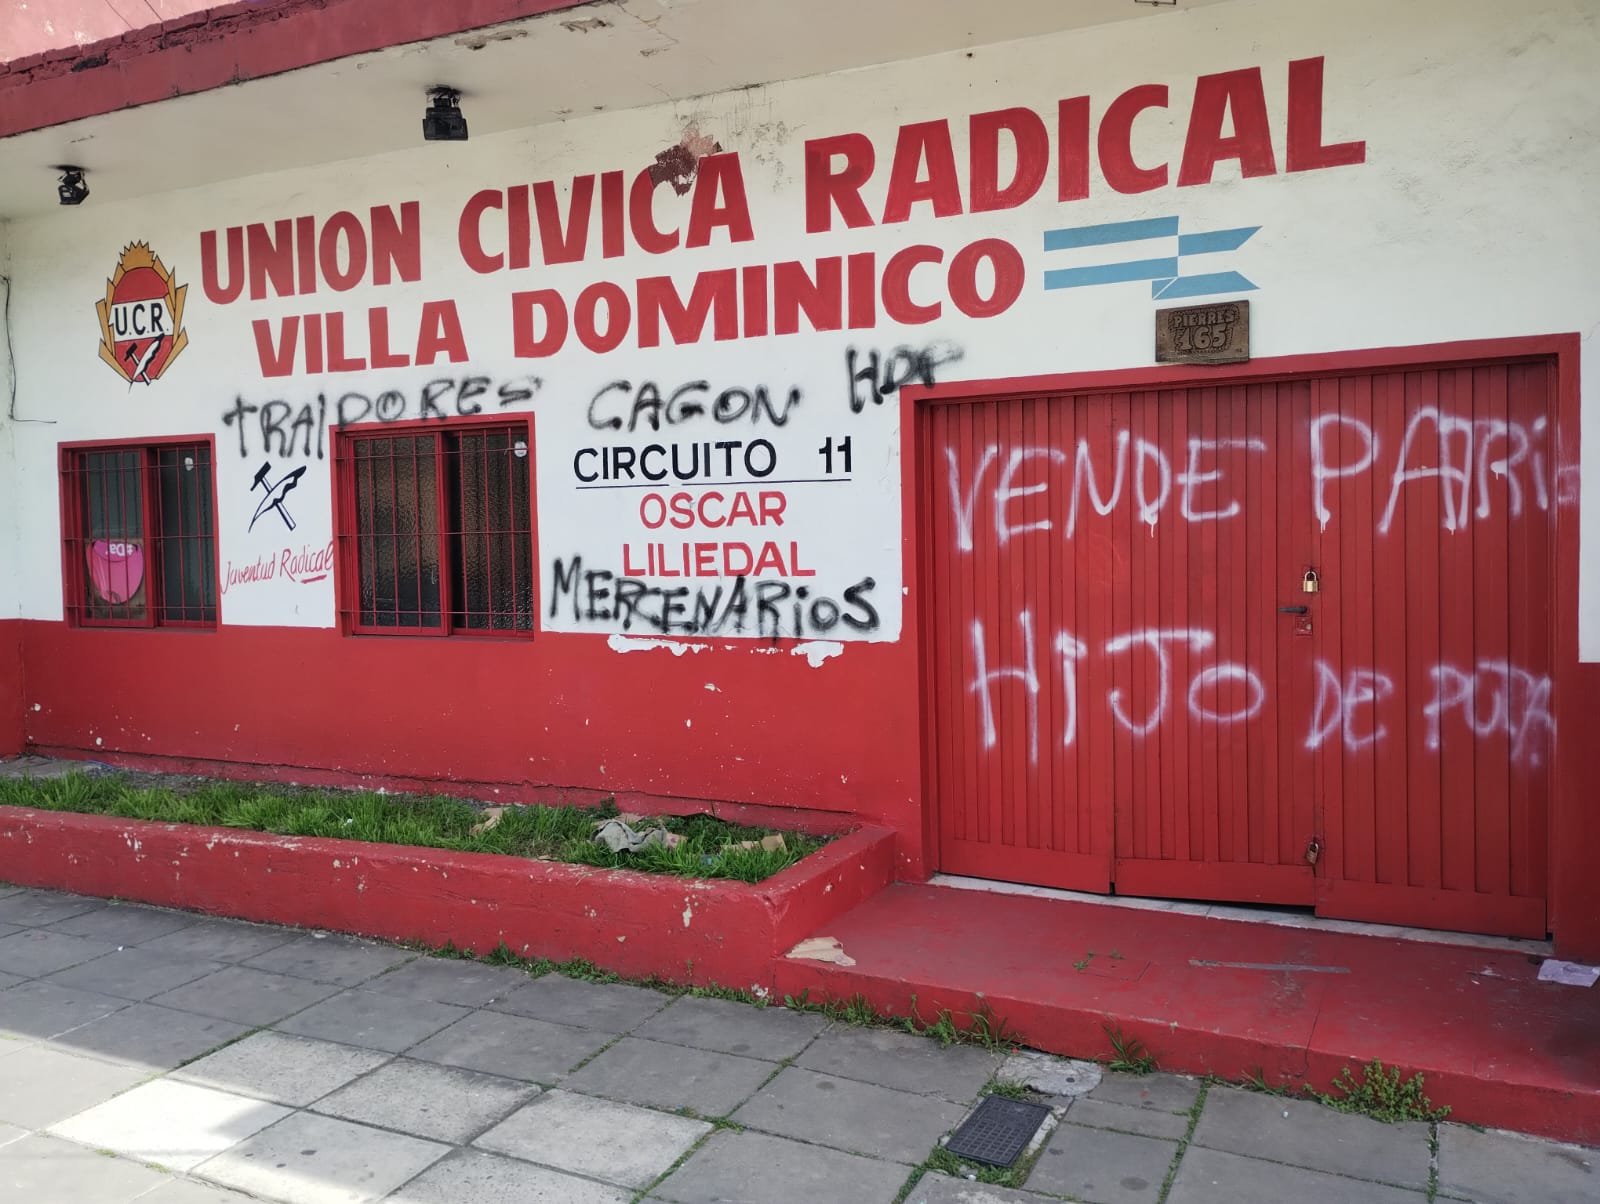 UNION CIVICA RADICAL
VILLA DOMINICO
U.C.R.
PIERRES
165
TRAIDORES CAGON HDP
CIRCUITO 11
OSCAR
LILIEDAL
MERCENARIOS
Juventud Radical
VENDE PATRI
HIJO DE PUTA